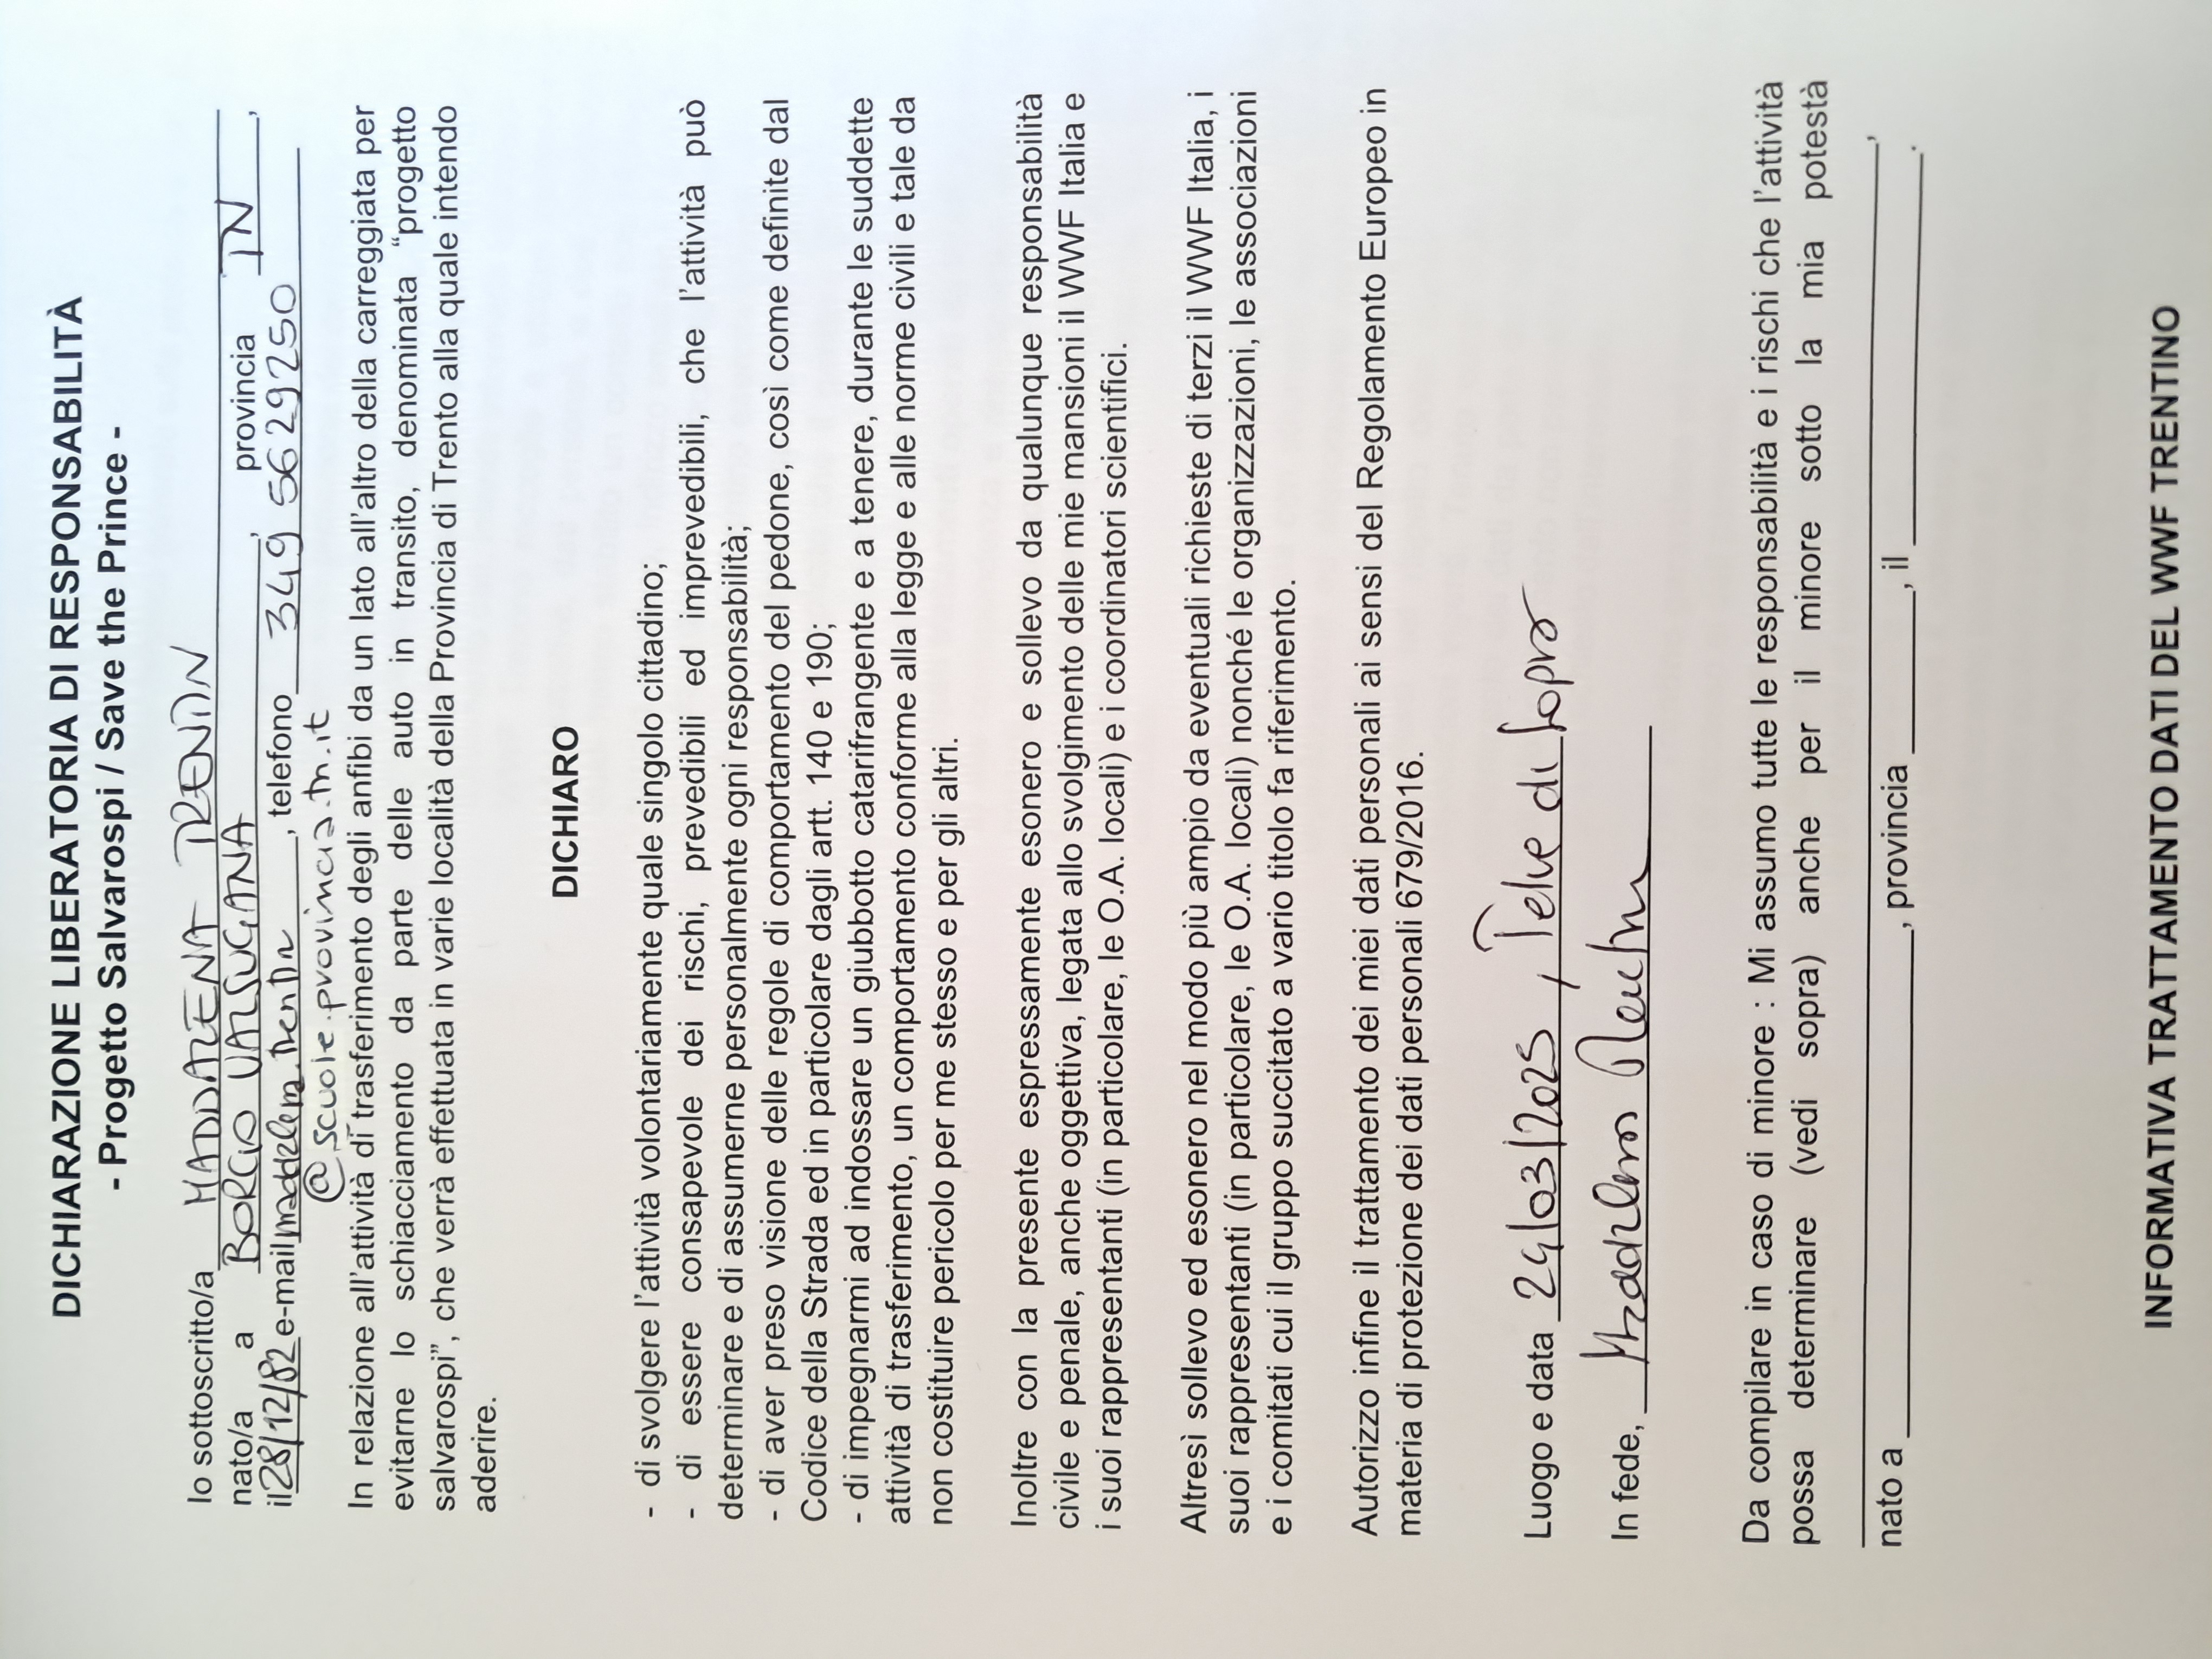 DICHIARAZIONE LIBERATORIA DI RESPONSABILITÀ
- Progetto Salvarospi / Save the Prince -
Io sottoscritto/a MADDALENA TRENTIN
nato/a a BORGO VALSUGANA, provincia TN,
il 28/12/82 e-mail maddalena.trentin, telefono 349 5629250
@scuole.provincia.tn.it
In relazione all'attività di trasferimento degli anfibi da un lato all'altro della carreggiata per
evitarne lo schiacciamento da parte delle auto in transito, denominata “progetto
salvarospi”, che verrà effettuata in varie località della Provincia di Trento alla quale intendo
aderire.
DICHIARO
- di svolgere l'attività volontariamente quale singolo cittadino;
- di essere consapevole dei rischi, prevedibili ed imprevedibili, che l'attività può
determinare e di assumerne personalmente ogni responsabilità;
- di aver preso visione delle regole di comportamento del pedone, così come definite dal
Codice della Strada ed in particolare dagli artt. 140 e 190;
- di impegnarmi ad indossare un giubbotto catarifrangente e a tenere, durante le suddette
attività di trasferimento, un comportamento conforme alla legge e alle norme civili e tale da
non costituire pericolo per me stesso e per gli altri.
Inoltre con la presente espressamente esonero e sollevo da qualunque responsabilità
civile e penale, anche oggettiva, legata allo svolgimento delle mie mansioni il WWF Italia e
i suoi rappresentanti (in particolare, le O.A. locali) e i coordinatori scientifici.
Altresì sollevo ed esonero nel modo più ampio da eventuali richieste di terzi il WWF Italia, i
suoi rappresentanti (in particolare, le O.A. locali) nonché le organizzazioni, le associazioni
e i comitati cui il gruppo succitato a vario titolo fa riferimento.
Autorizzo infine il trattamento dei miei dati personali ai sensi del Regolamento Europeo in
materia di protezione dei dati personali 679/2016.
Luogo e data 24/03/2025, Telve di Sopra
In fede, Maddalena Trentin
Da compilare in caso di minore : Mi assumo tutte le responsabilità e i rischi che l'attività
possa determinare (vedi sopra) anche per il minore sotto la mia potestà
,
nato a , provincia , il .
INFORMATIVA TRATTAMENTO DATI DEL WWF TRENTINO